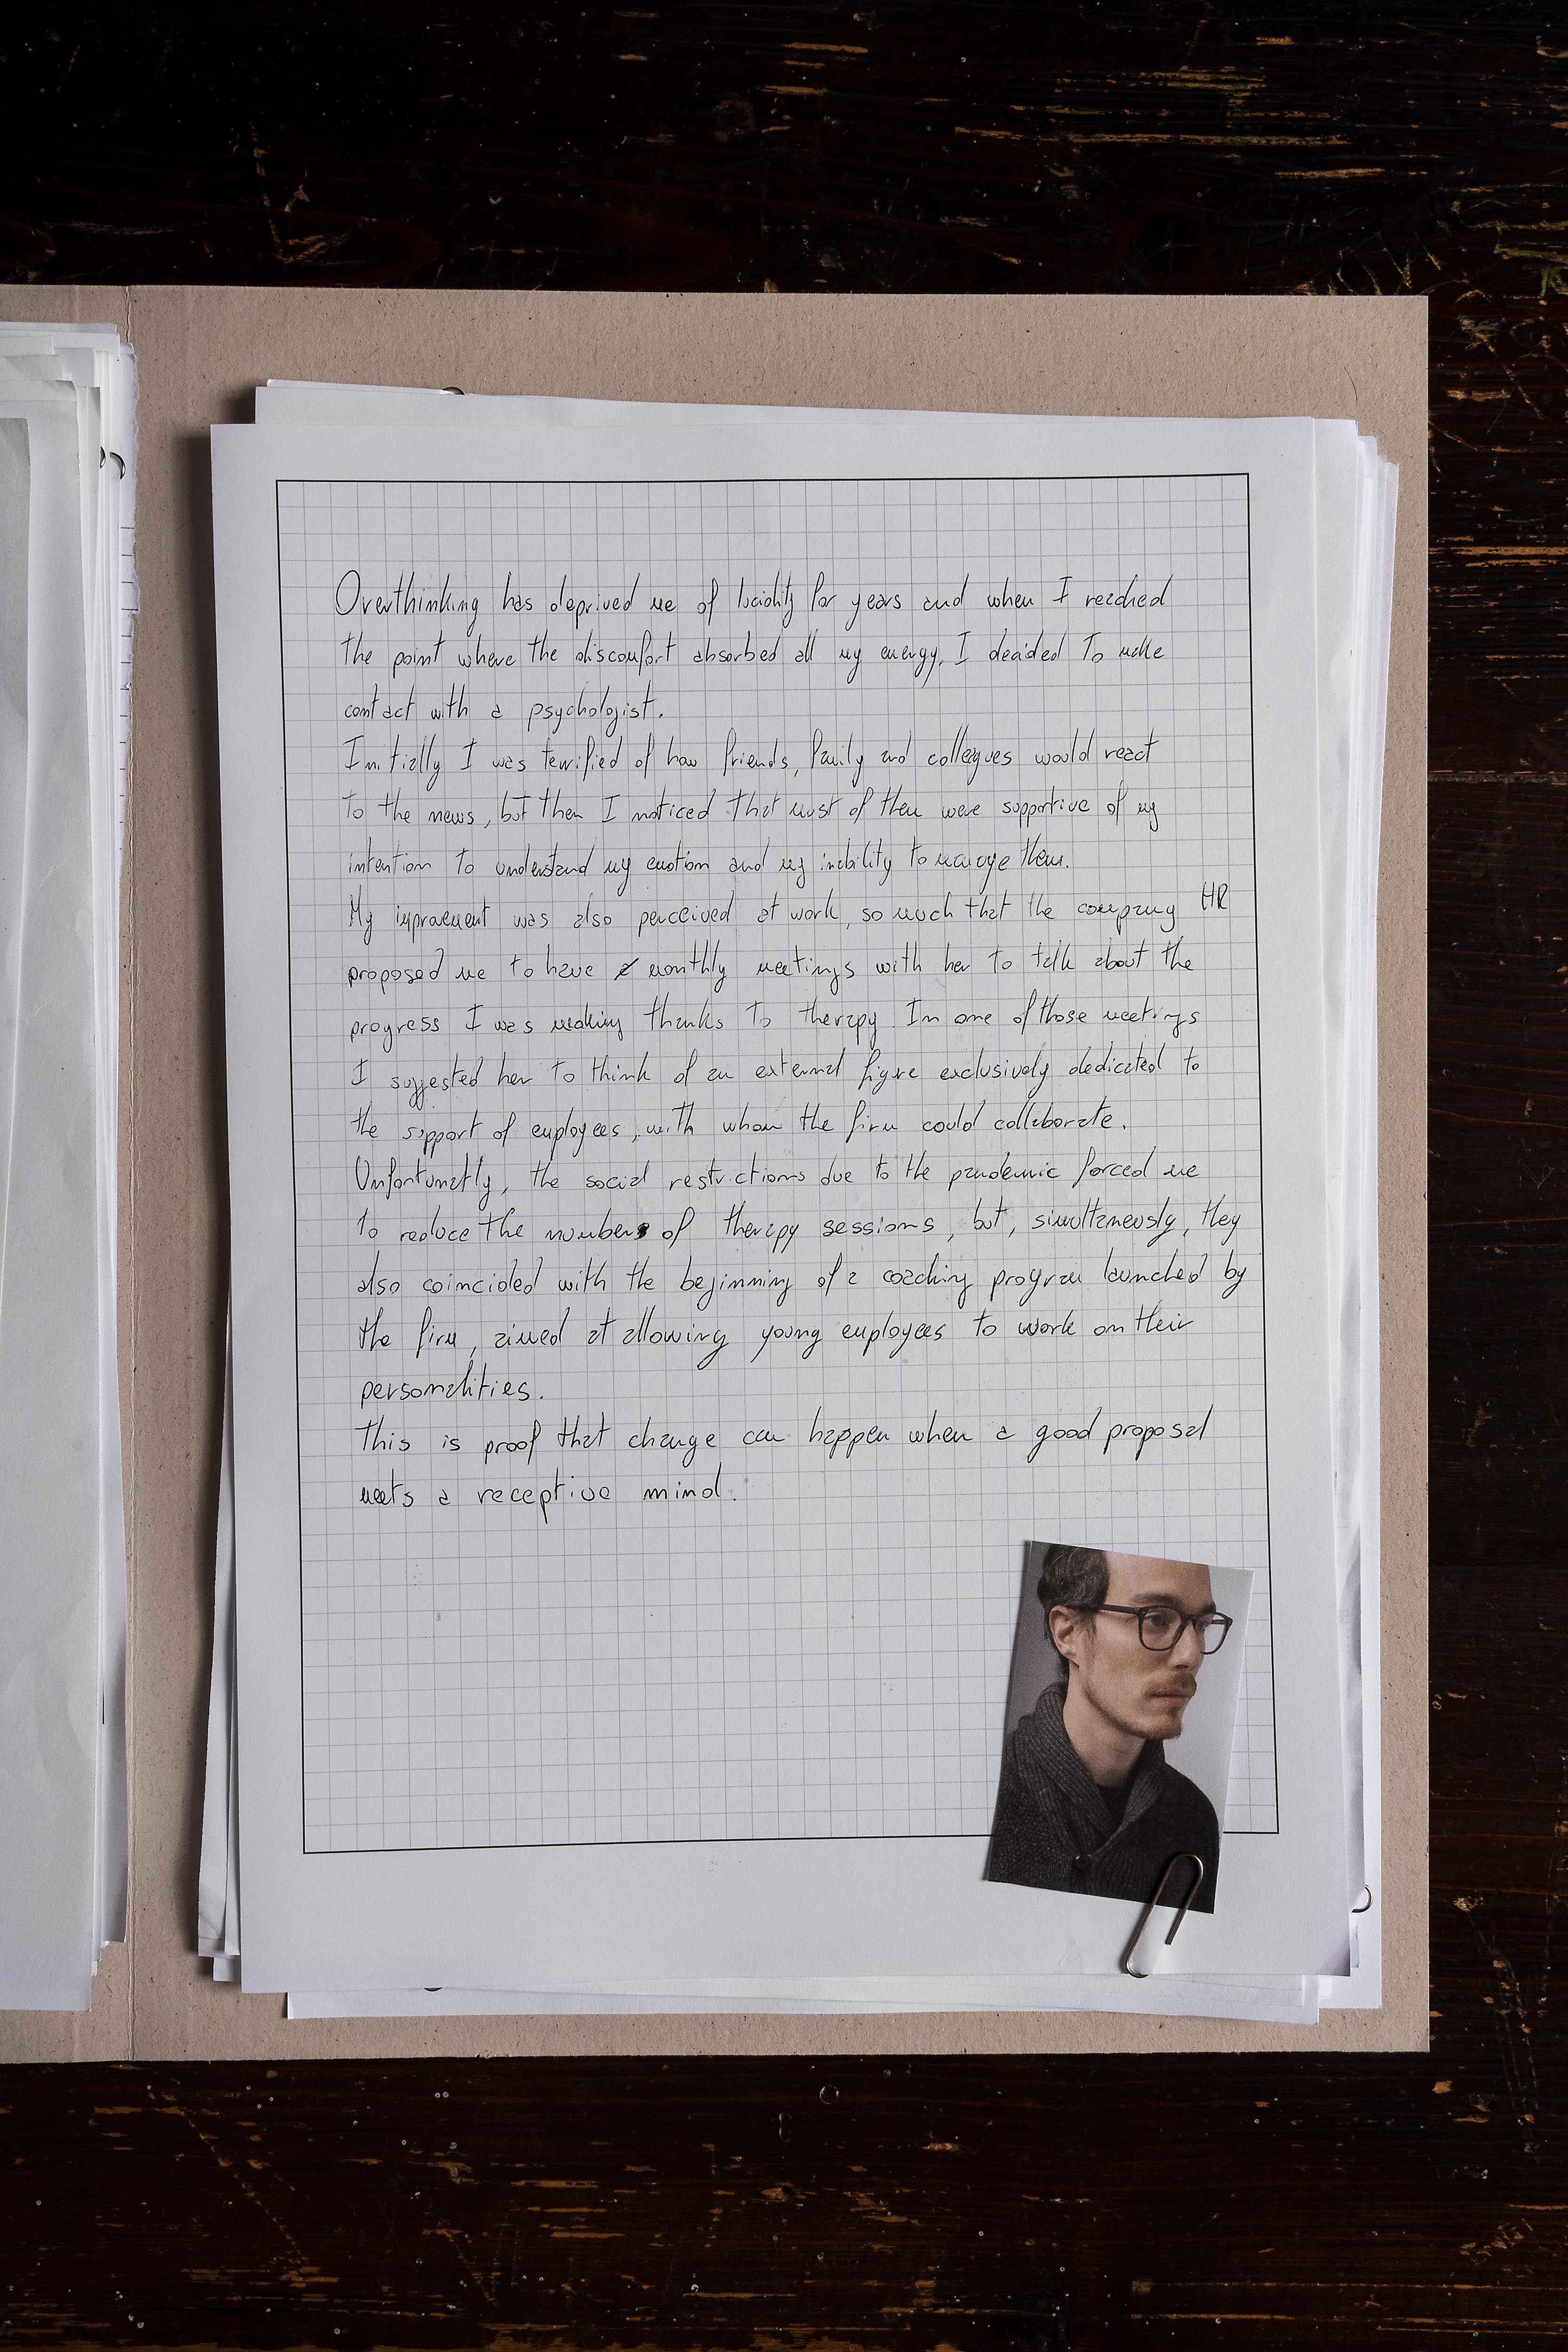 Overthinking has deprived me of lucidity for years and when I reached
the point where the discomfort absorbed all my energy, I decided to make
contact with a psychologist.
Initially I was terrified of how friends, family and collegues would react
to the news, but then I noticed that most of them were supportive of my
intention to understand my emotion and my inability to manage them.
My improvement was also perceived at work, so much that the company HR
proposed me to have monthly meetings with her to talk about the
progress I was making thanks to therapy. In one of those meetings
I suggested her to think of an external figure exclusively dedicated to
the support of employees, with whom the firm could collaborate.
Unfortunatly, the social restrictions due to the pandemic forced me
to reduce the number of therapy sessions, but, simultaneously, they
also coincided with the beginning of a coaching program launched by
the firm, aimed at allowing young employees to work on their
personalities.
This is proof that change can happen when a good proposal
meets a receptive mind.